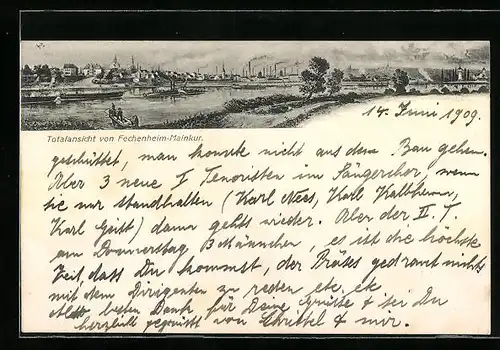 Totalansicht von Fechenheim-Mainkur.
14. Juni 1909.
geschüttet, man konnte nicht aus dem Bau gehen.
Aber 3 neue I Tenoristen im Sängerchor, wenn
sie nur standhalten (Karl Nees, Karl
Karl) dann gehts wieder. Aber der II. T.
am Donnerstag 3 Männchen, es ist die höchste
Zeit, dass Du kommst, der Präses gedraut nichts
mit dem Dirigenten zu reden etc. etc
Also besten Dank für Deine Grüße & sei Du
herzlich gegrüsst von & mir.